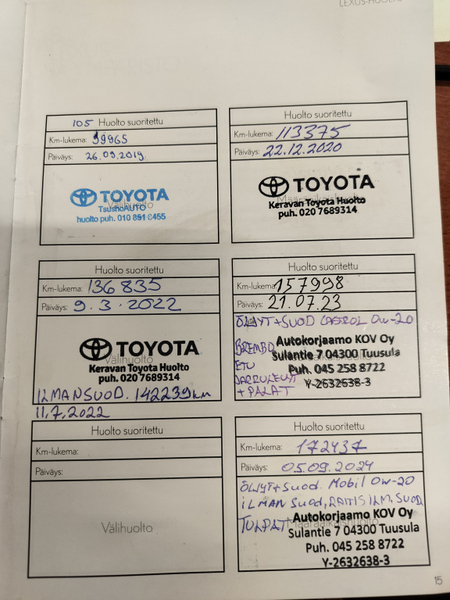 LEXUS-HUOLTO
105 Huolto suoritettu
Km-lukema: 99965
Päiväys: 26.09.2019
TOYOTA
Välihuolto
TsushoAUTO
huolto puh. 010 851 8455
Huolto suoritettu
Km-lukema: 113375
Päiväys: 22.12.2020
TOYOTA
Keravan Toyota Huolto
puh. 020 7689314
Huolto suoritettu
Km-lukema: 136 835
Päiväys: 9.3.2022
TOYOTA
Keravan Toyota Huolto
Välihuolto
puh. 020 7689314
ILMANSUOD. 142239 km
11.7.2022
Huolto suoritettu
Km-lukema: 157998
Päiväys: 21.07.23
ÖLJYT+SUOD CASTROL 0W-20
Autokorjaamo KOV Oy
BREMBO
Sulantie 7 04300 Tuusula
ETU
Puh. 045 258 8722
JARRULEVYT
Y-2632638-3
+ PALAT
Huolto suoritettu
Km-lukema:
Päiväys:
Välihuolto
Huolto suoritettu
Km-lukema: 172437
Päiväys: 05.09.2024
ÖLJYT+SUOD. Mobil 0W-20
ILMAN SUOD, RAITIS ILM. SUOD
TULPAT
Autokorjaamo KOV Oy
Sulantie 7 04300 Tuusula
Puh. 045 258 8722
Y-2632638-3
15